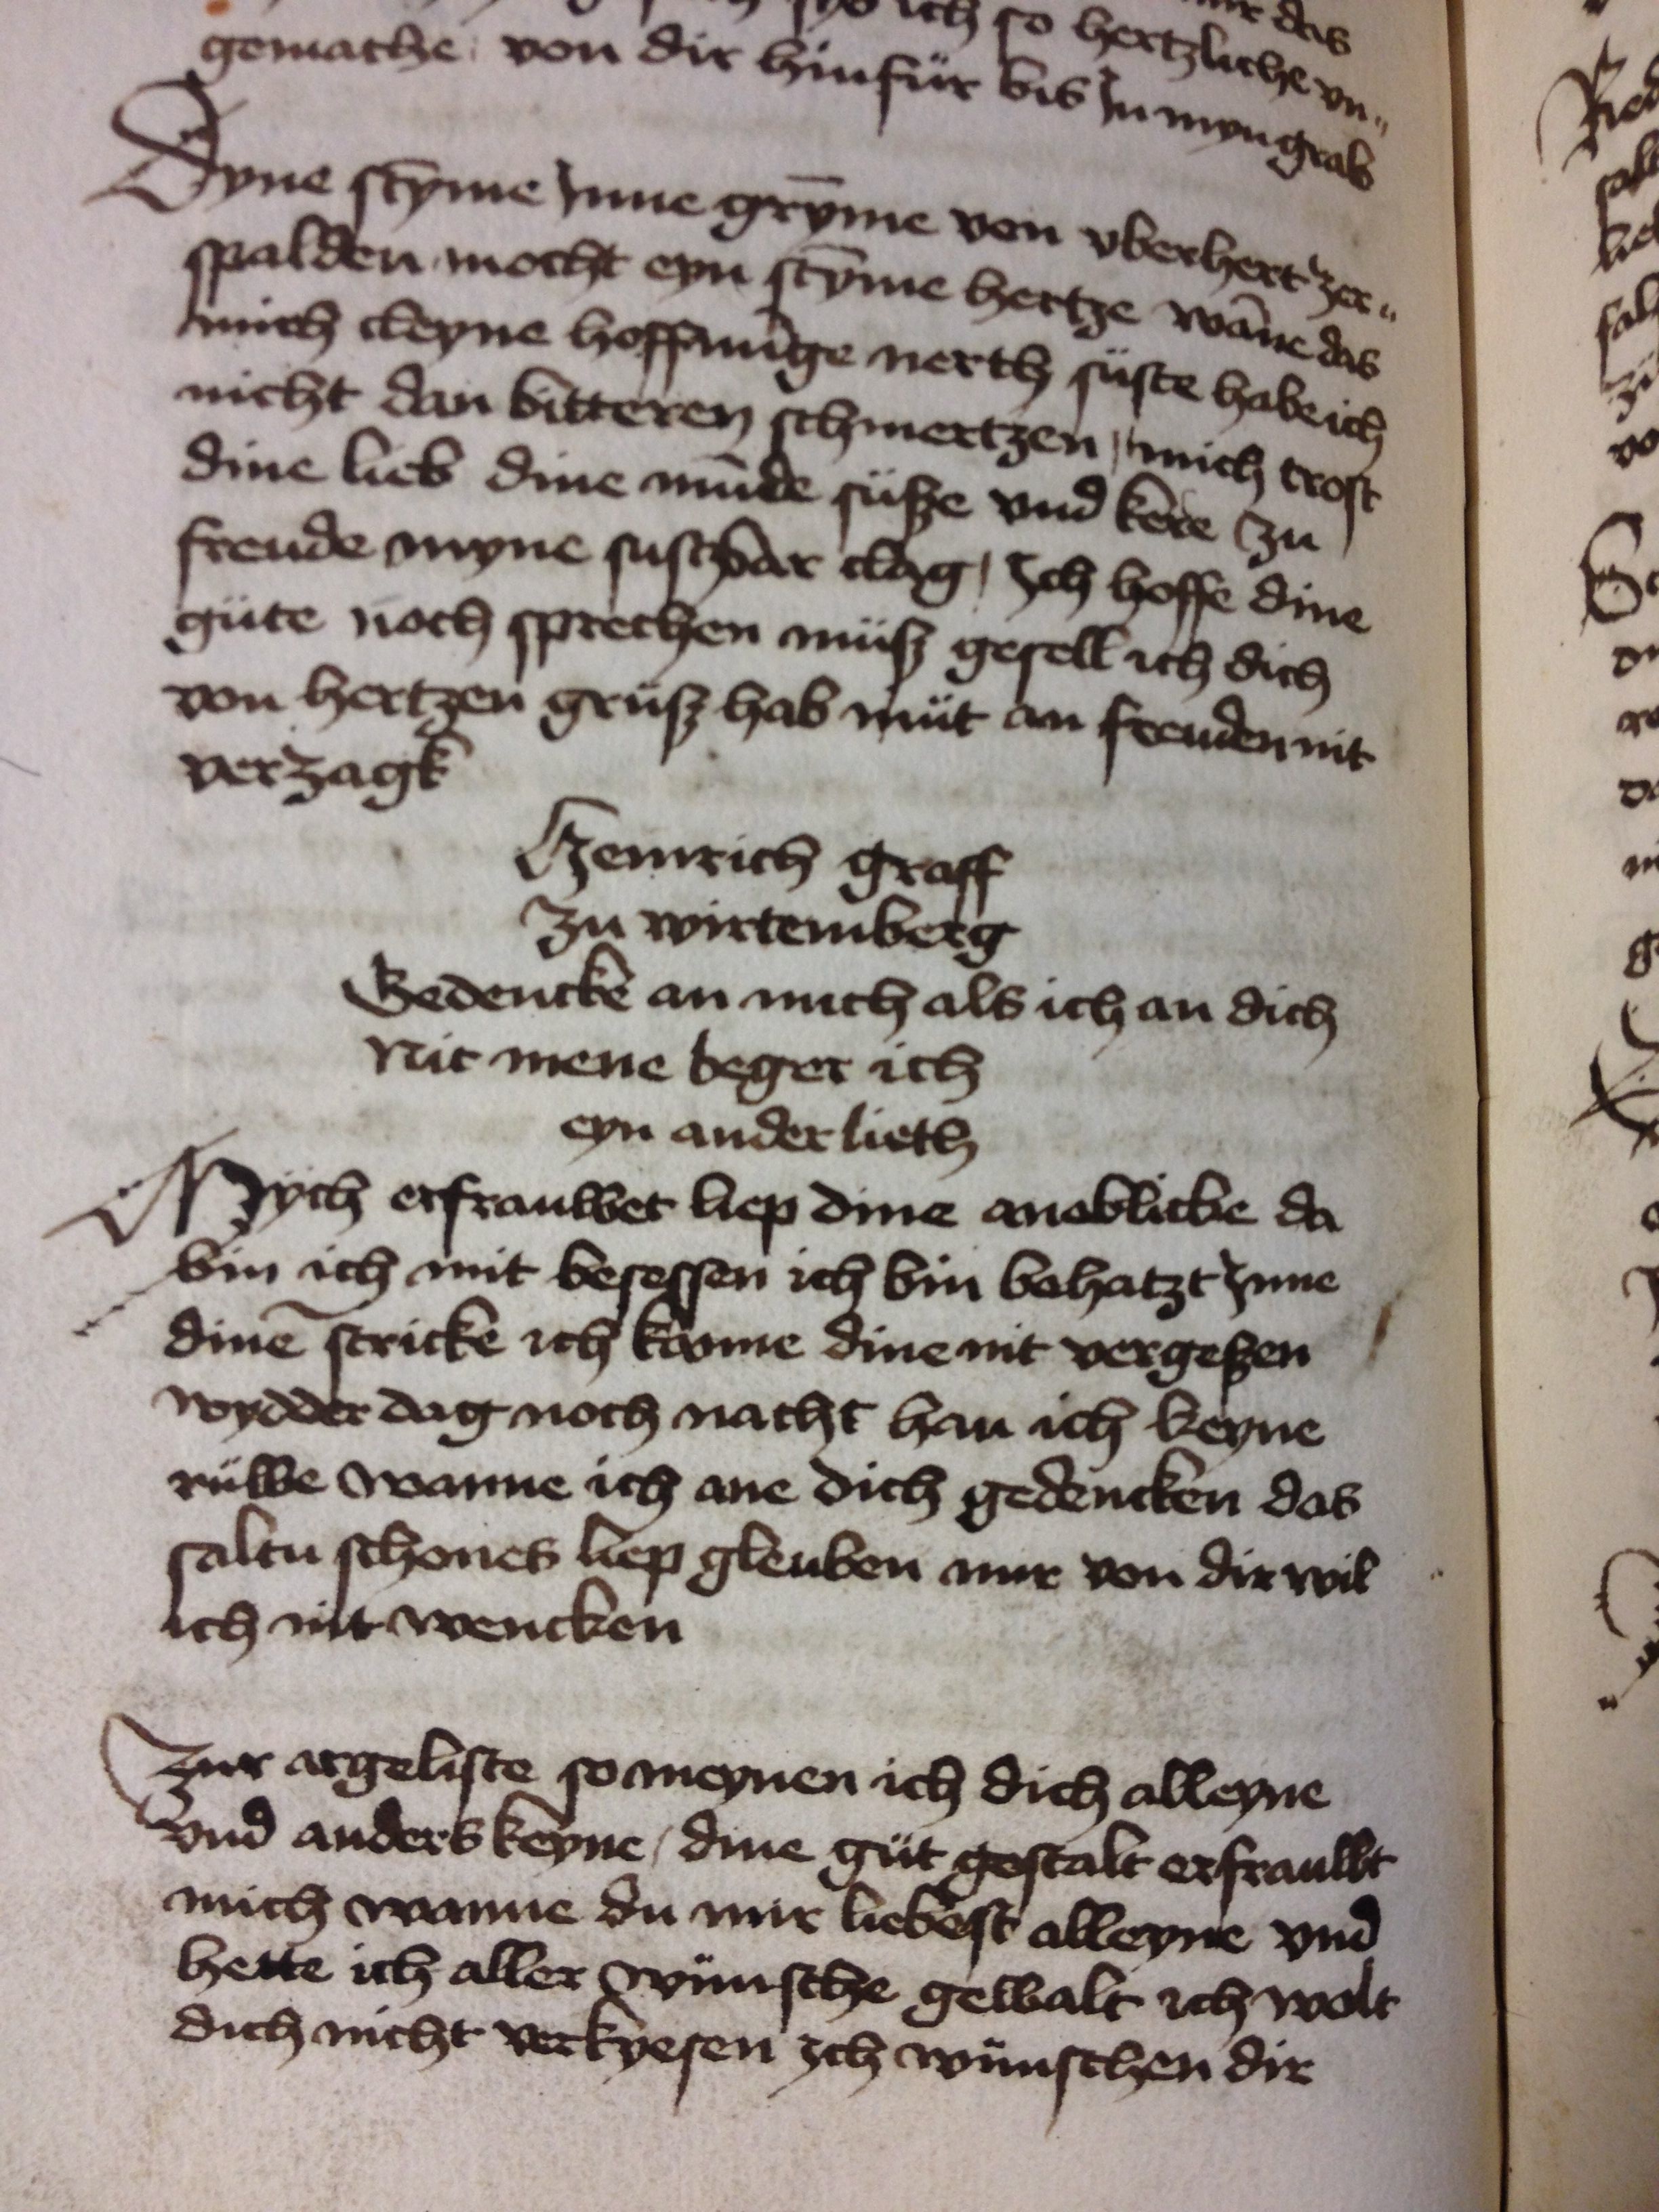 ich so hertzliche vn„
gemache von dir hinfür bis Jn myn grab
Dyne stȳme Jnne grȳme von vberhert zer„
spalden mocht eyn stȳme hertze wāne das
mich cleyne hoffnūge nerth süste habe ich
nicht dan bitteren schmertzen / mich trost
dine lieb dine mūde süsze vnd kere zu
freude myne sustzbar clag / Jch hoffe dine
güte noch sprechen müsz gesell ich dich
von hertzen grüsz hab müt an freuden nit
verzagk
Heinrich graff
zu wirtemberg
Gedencke an mich als ich an dich
Nit mene beger ich
eyn ander lieth
Mych erfrauwet liep dine aneblicke da
bin ich mit besessen ich bin behatzt Jnne
dinē stricke ich konne dine nit vergeszen
wydder dag noch nacht han ich keyne
rüwe wanne ich ane dich gedencken das
saltu schones liep gleuben mir von dir wil
ich nit wencken
Zur argeliste so meynen ich dich alleyne
vnd anders keyne / dine güt gestalt erfrauwt
mich wanne du mir liebest alleyne vnd
hette ich aller wünsche gewalt ich wolt
dich nicht verkyesen Jch wünschen dir